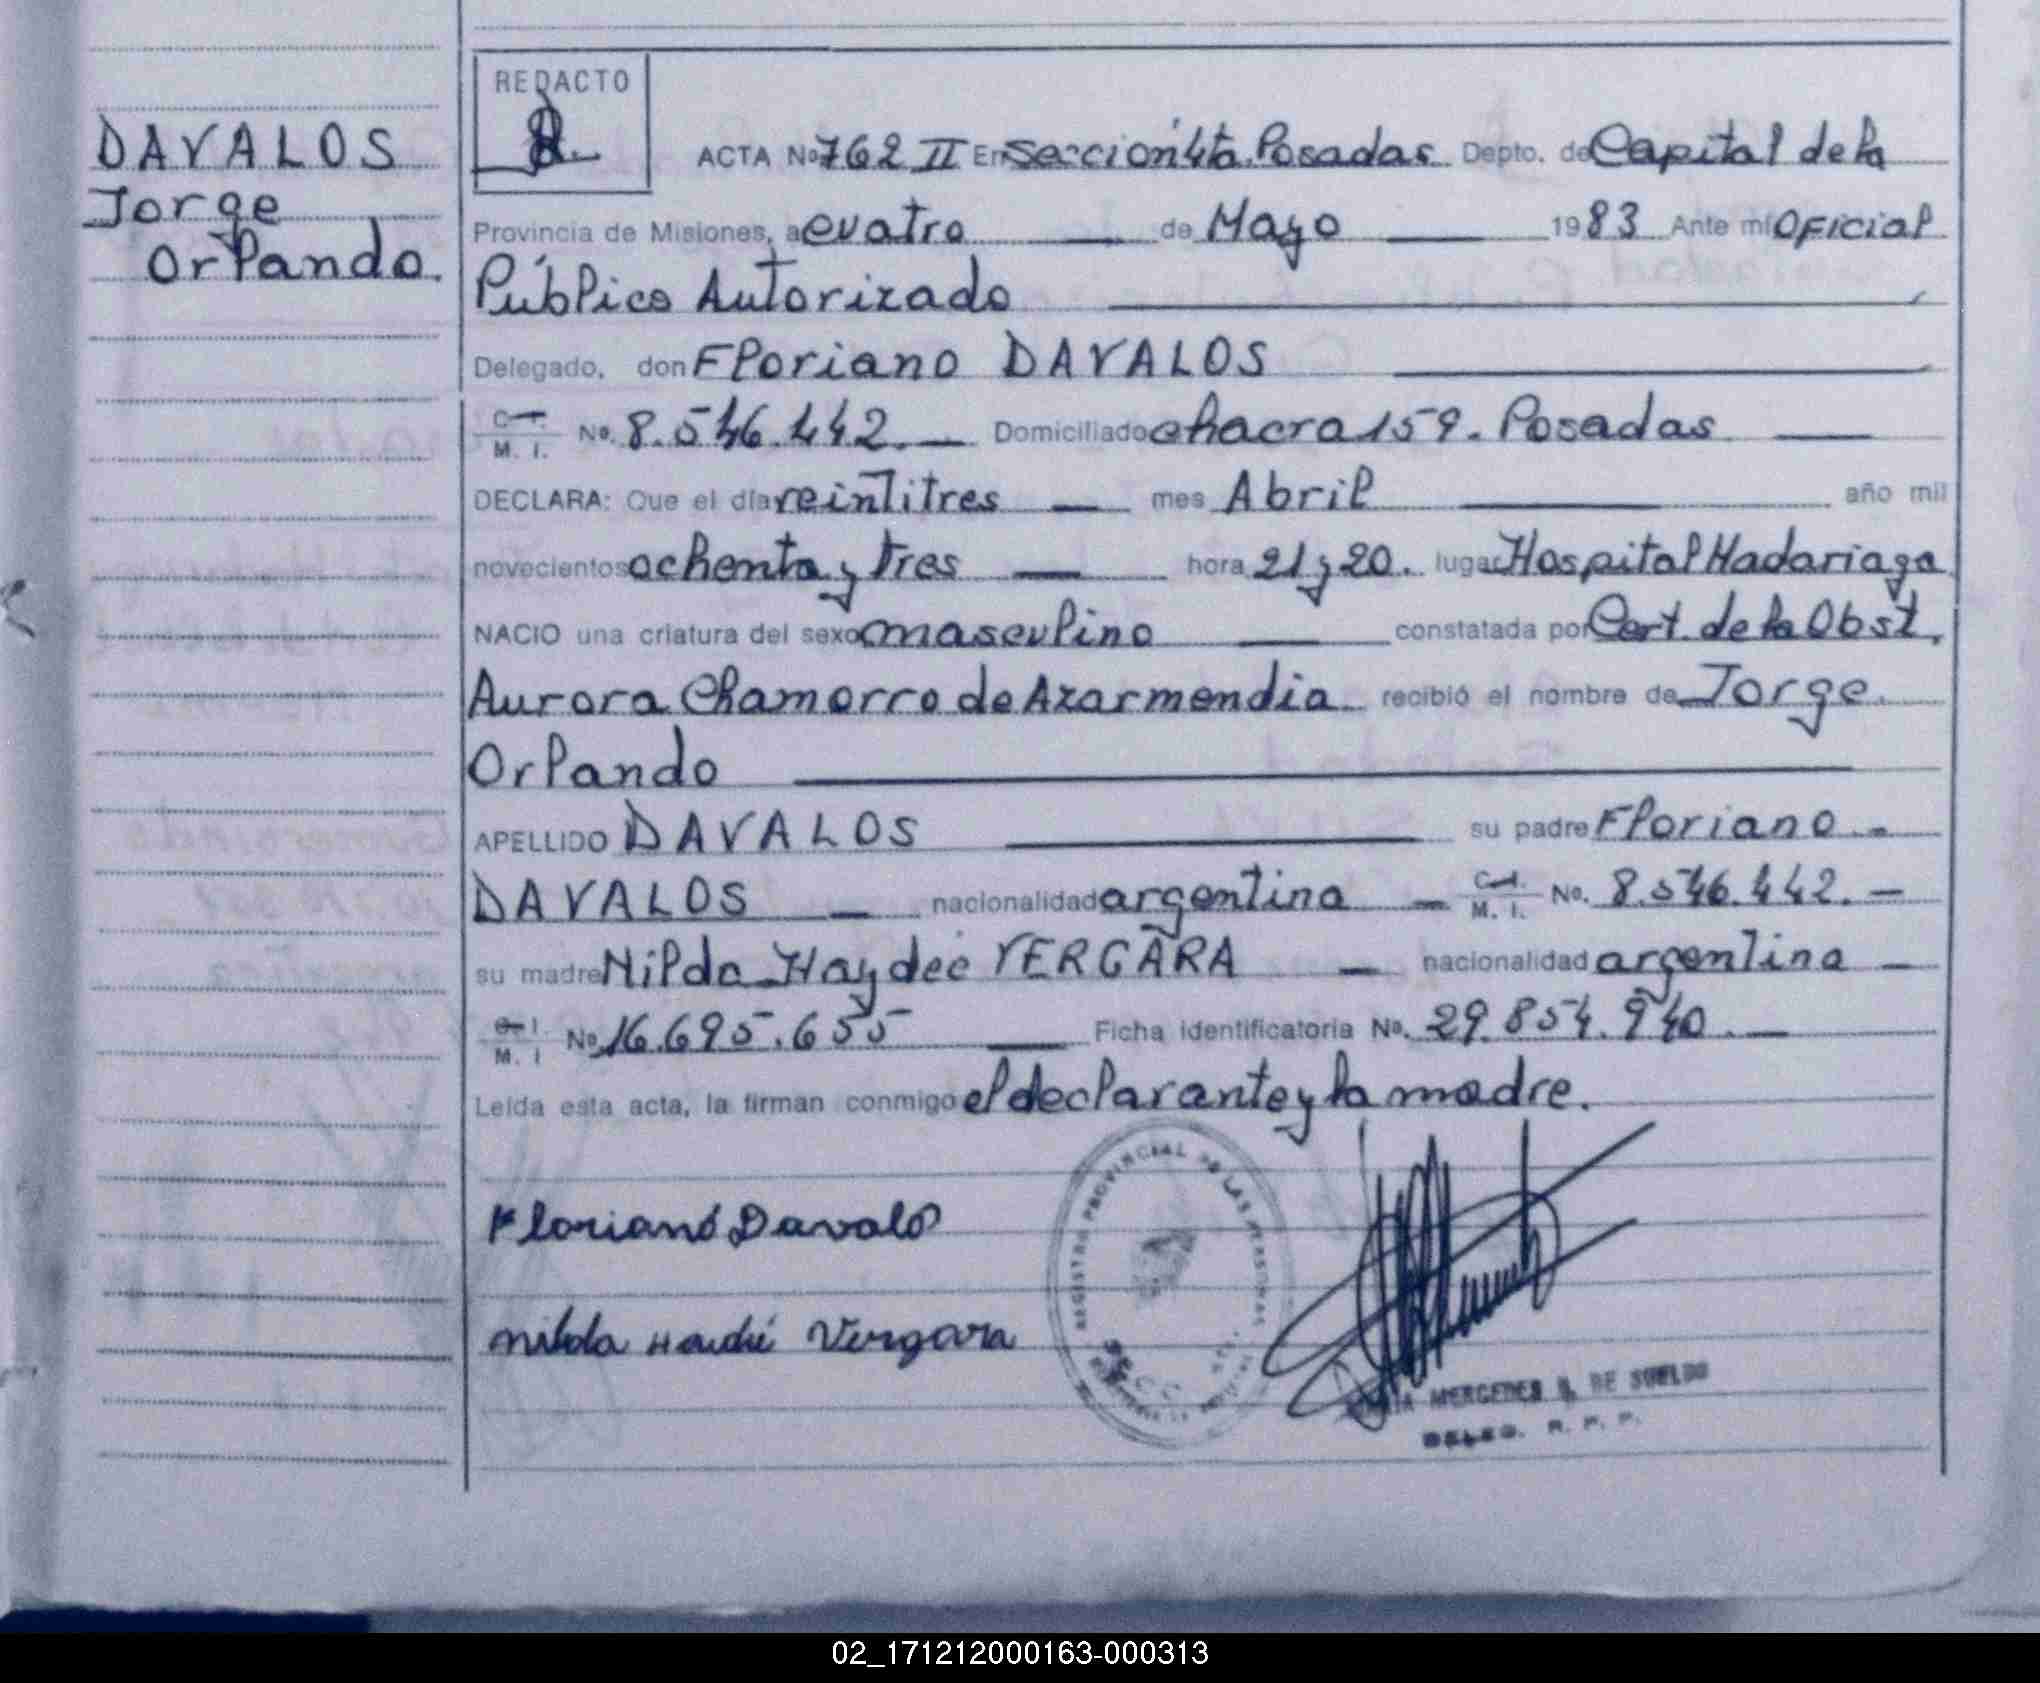 DAVALOS
Jorge
Orlando.
REDACTO
ACTA No 762 II En Sección 4ta. Posadas Depto. de Capital de la
Provincia de Misiones, a cuatro de Mayo 1983 Ante mi Oficial
Público Autorizado
Delegado, don Floriano DAVALOS
C. I.
M. I. No. 8.546.442. Domiciliado chacra 159. Posadas
DECLARA: Que el día veintitres mes Abril año mil
novecientos ochenta y tres hora 21 y 20. lugar Hospital Madariaga
NACIO una criatura del sexo masculino constatada por Cert. de la Obst.
Aurora Chamorro de Azarmendia recibió el nombre de Jorge
Orlando
APELLIDO DAVALOS su padre Floriano
DAVALOS nacionalidad argentina C. I.
M. I. No. 8.546.442.
su madre Nilda Haydeé VERGARA nacionalidad argentina
C. I.
M. I No 16.695.655 Ficha identificatoria No. 29.854.940
Leída esta acta, la firman conmigo el declarante y la madre.
Floriano Davalo
REGISTRO PROVINCIAL DE LAS PERSONAS
SECC.
Nilda Haidé Vergara
MERCEDES DE SUELDO
DELEG. R. P. P.
02_171212000163-000313